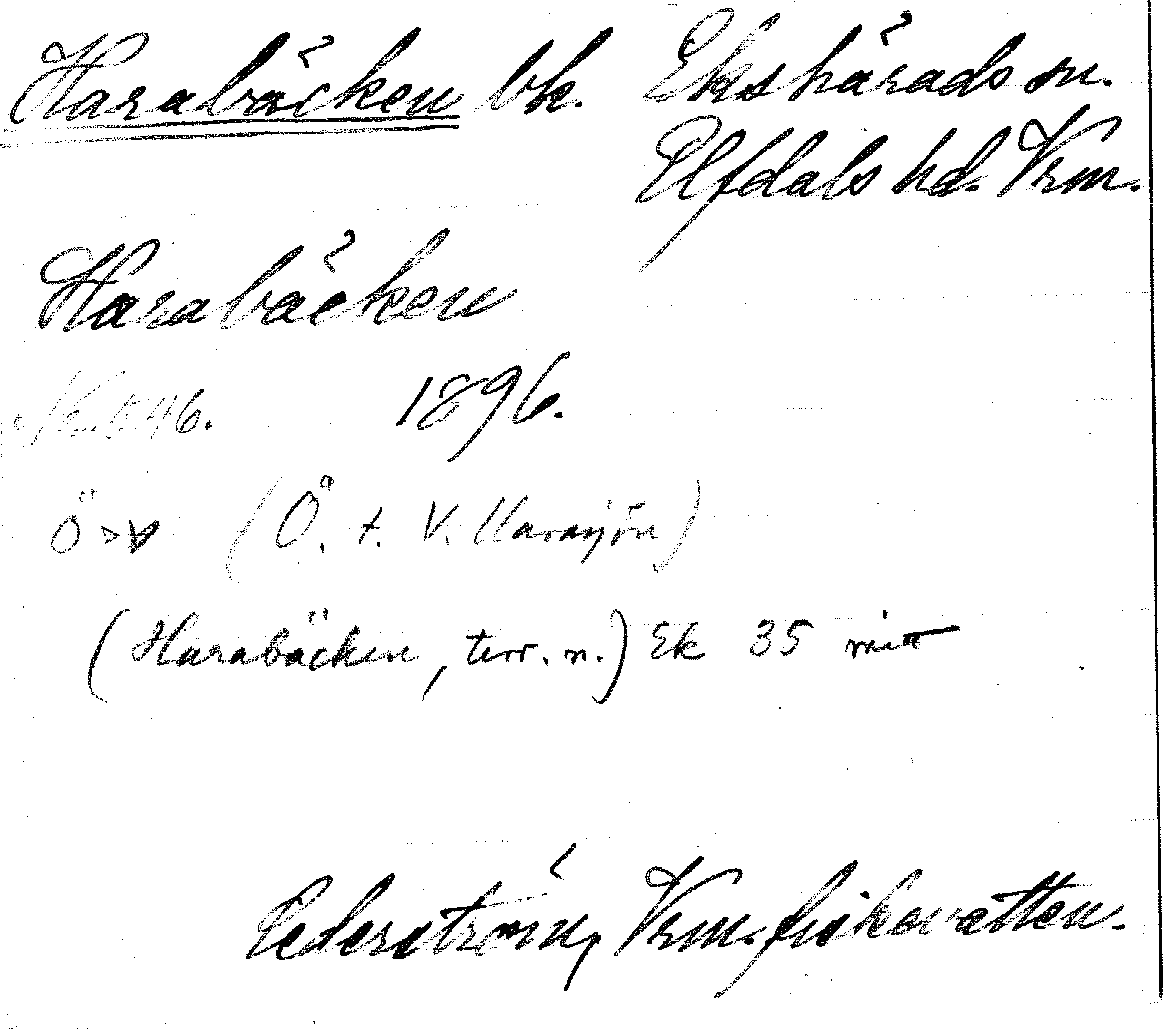 Harabäcken bk. Ekshärads sn.
Elfdals hd. Vrm.
Harabäcken
546. 1896.
Ö (Ö. t. V. Harsjön)
(Harabäcken, terr. n.) Ek 35 mitt
Cederström, Vrm. fiskevatten.